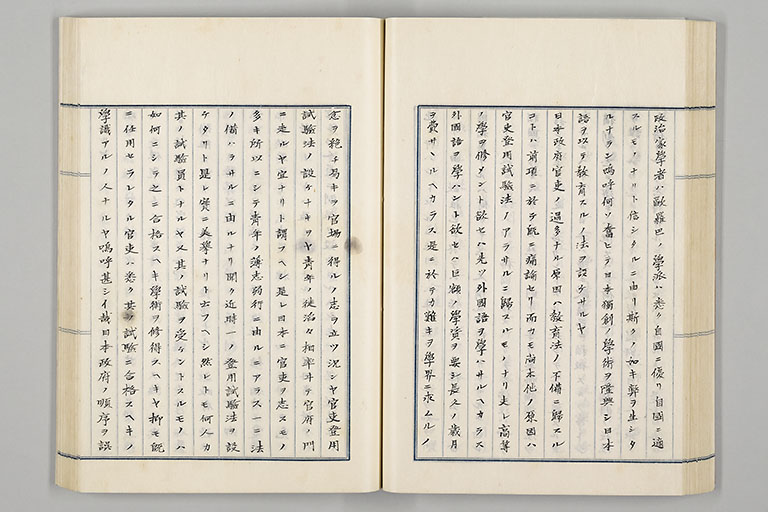 政治家學者ハ歐羅巴ノ學派ハ悉ク自國ニ優リ自國ニ適
スルモノナリト信シタルニ由リ斯クノ如キ弊ヲ生シタ
ルナラン嗚呼何ソ奮ヒテ日本獨創ノ學術ヲ隆興シ日本
語ヲ以テ教育スルノ法ヲ設ケサルヤ
日本政府官吏ノ過多ナル原因ハ教育法ノ不備ニ歸スル
コトハ前項ニ於テ既ニ痛論セリ而カモ尚ホ他ノ原因ハ
官吏登用試驗法ノアラサルニ歸スルモノナリ夫レ高等
ノ學ヲ修メント欲セハ先ツ外國語ヲ學ハサルヘカラス
外國語ヲ學ハント欲セハ巨額ノ學資ヲ要シ長久ノ歳月
ヲ費サヽルヘカラス是ニ於テカ難キヲ學界ニ求ムルノ
念ヲ絶チ易キヲ官場ニ得ルノ志ヲ立ツ況シヤ官吏登用
試驗法ノ設ケナキヲヤ青年ノ徒滔々相率ヰテ官府ノ門
ニ走ルヤ宜ナリト謂フヘシ是レ日本ニ官吏ヲ志スモノ
多キ所以ニシテ青年ノ薄志弱行ニ由ルニアラス一ニ法
ノ備ハラサルニ由ルナリ聞ク近時一ノ登用試驗法ヲ設
ケタリト是レ實ニ美擧ナリト云フヘシ然レトモ何人カ
其ノ試驗員トナルヤ又其ノ試驗ヲ受ケントスルモノハ
如何ニシテ之ニ合格スヘキ學術ヲ修得スヘキヤ抑モ既
ニ任用セラレタル官吏ハ悉ク其ノ試驗ニ合格スヘキノ
學識アルノ人ナルヤ嗚呼甚シイ哉日本政府ノ順序ヲ誤